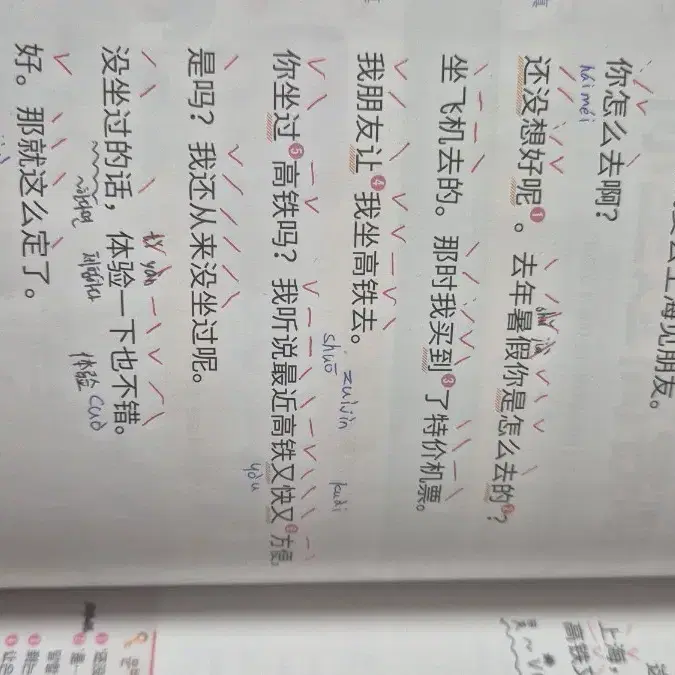 上海见朋友。
你怎么去啊？
hái méi
还没想好呢❶。去年暑假你是怎么去的❷？
坐飞机去的。那时我买到❸了特价机票。
我朋友让❹我坐高铁去。
你坐过❺高铁吗？我听说最近高铁又快又❻方便。
shuō
zuì jìn
kuài
yòu
是吗？我还从来没坐过呢。
没坐过的话，体验一下也不错。
tǐ yàn
体验
cuò
好。那就这么定了。
上海，
高铁